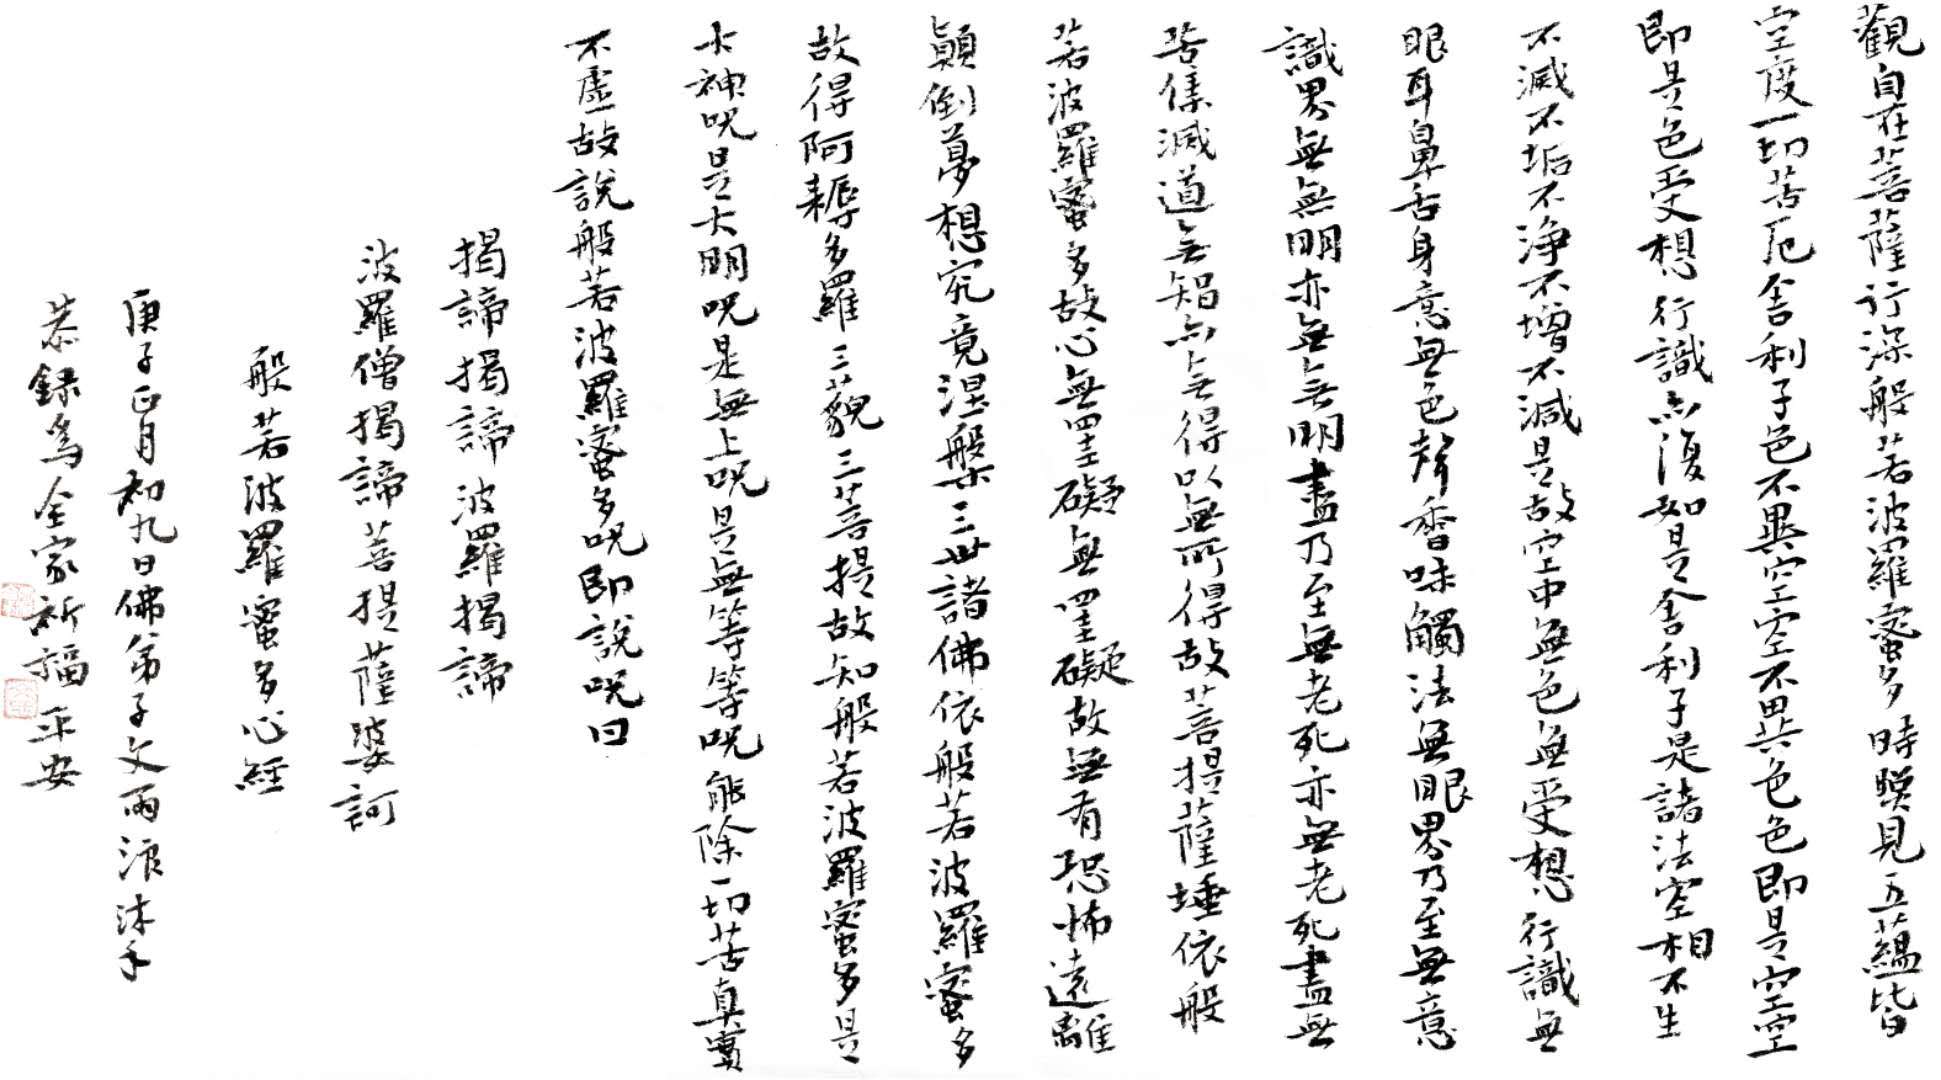 觀自在菩薩行深般若波羅蜜多時照見五蘊皆
空度一切苦厄舍利子色不異空空不異色色即是空空
即是色受想行識亦復如是舍利子是諸法空相不生
不滅不垢不淨不增不減是故空中無色無受想行識無
眼耳鼻舌身意無色聲香味觸法無眼界乃至無意
識界無無明亦無無明盡乃至無老死亦無老死盡無
苦集滅道無智亦無得以無所得故菩提薩埵依般
若波羅蜜多故心無罣礙無罣礙故無有恐怖遠離
顛倒夢想究竟涅槃三世諸佛依般若波羅蜜多
故得阿耨多羅三藐三菩提故知般若波羅蜜多是
大神咒是大明咒是無上咒是無等等咒能除一切苦真實
不虛故說般若波羅蜜多咒即說咒曰
揭諦揭諦波羅揭諦
波羅僧揭諦菩提薩婆訶
般若波羅蜜多心經
庚子正月初九日佛弟子文雨沐手
恭録為全家祈福平安